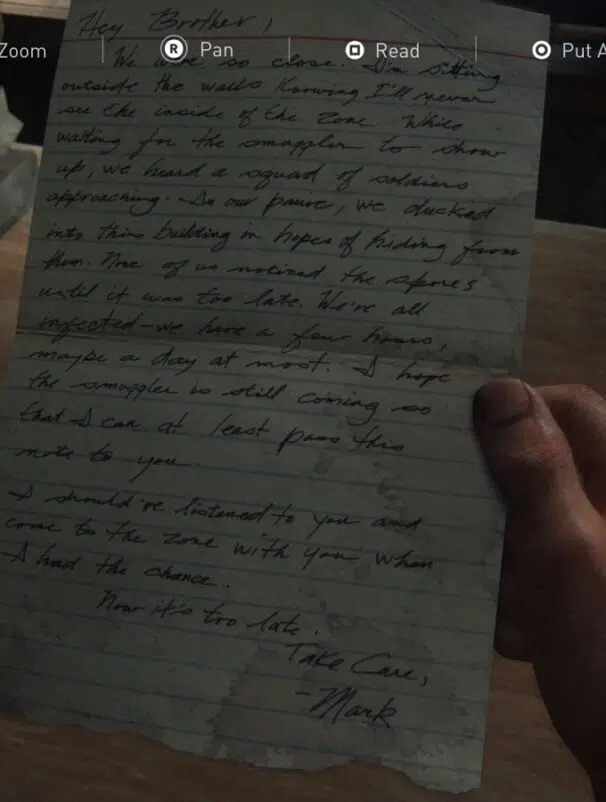 Hey Brother,
Zoom R Pan Read Put A
We were so close. I'm sitting
outside the walls knowing I'll never
see the inside of the zone. While
waiting for the smuggler to show
up, we heard a squad of soldiers
approaching. In our panic, we ducked
into this building in hopes of hiding from
them. None of us noticed the spores
until it was too late. We're all
infected-we have a few hours,
maybe a day at most. I hope
the smuggler is still coming so
that I can at least pass this
note to you.
I should've listened to you and
come to the zone with you when
I had the chance.
Now it's too late.
Take Care,
-Mark